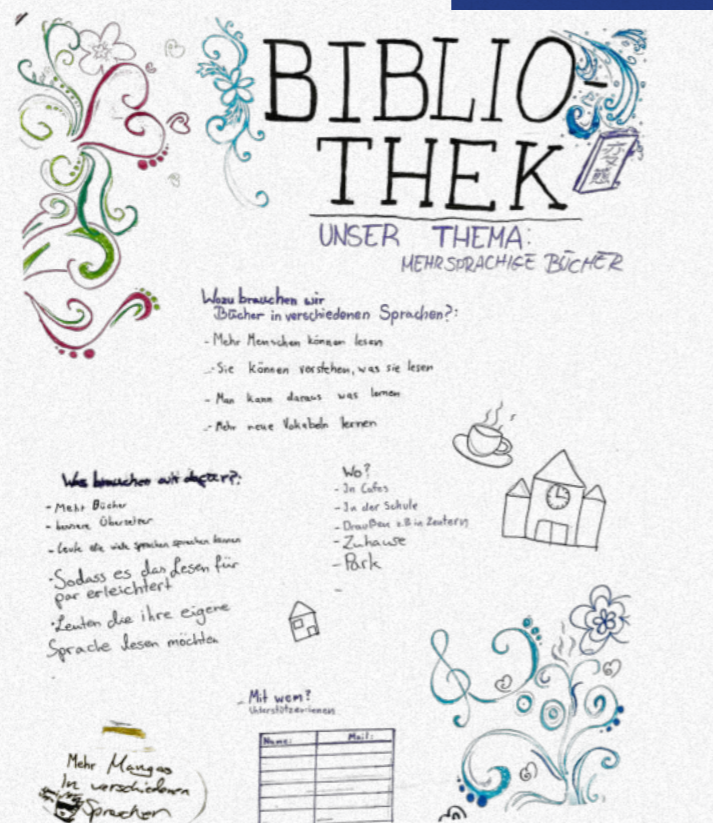 BIBLIO-
THEK
変態
UNSER THEMA:
MEHRSPRACHIGE BÜCHER
Wozu brauchen wir
Bücher in verschiedenen Sprachen?:
- Mehr Menschen können lesen
- Sie können verstehen, was sie lesen
- Man kann daraus was lernen
- Mehr neue Vokabeln lernen
Was brauchen wir dafür?:
- Mehr Bücher
- bessere Übersetzer
- Leute die viele sprachen sprechen können
- Sodass es das Lesen für
par erleichtert
- Leuten die ihre eigene
Sprache lesen möchten
Wo?
- In Cafes
- In der Schule
- Draußen z.B in Zentern
- Zuhause
- Park
-
- Mit wem?
Unterstützer:innen
Name: Mail:
Mehr Mangas
In verschiedenen
Sprachen